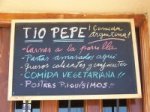 TIO PEPE ¡Comida
argentina!
- Carnes a la parrilla
- Pastas amasadas aquí
- Quesos calientes y
- COMIDA VEGETARIANA!!
- POSTRES RIQUÍSIMOS!